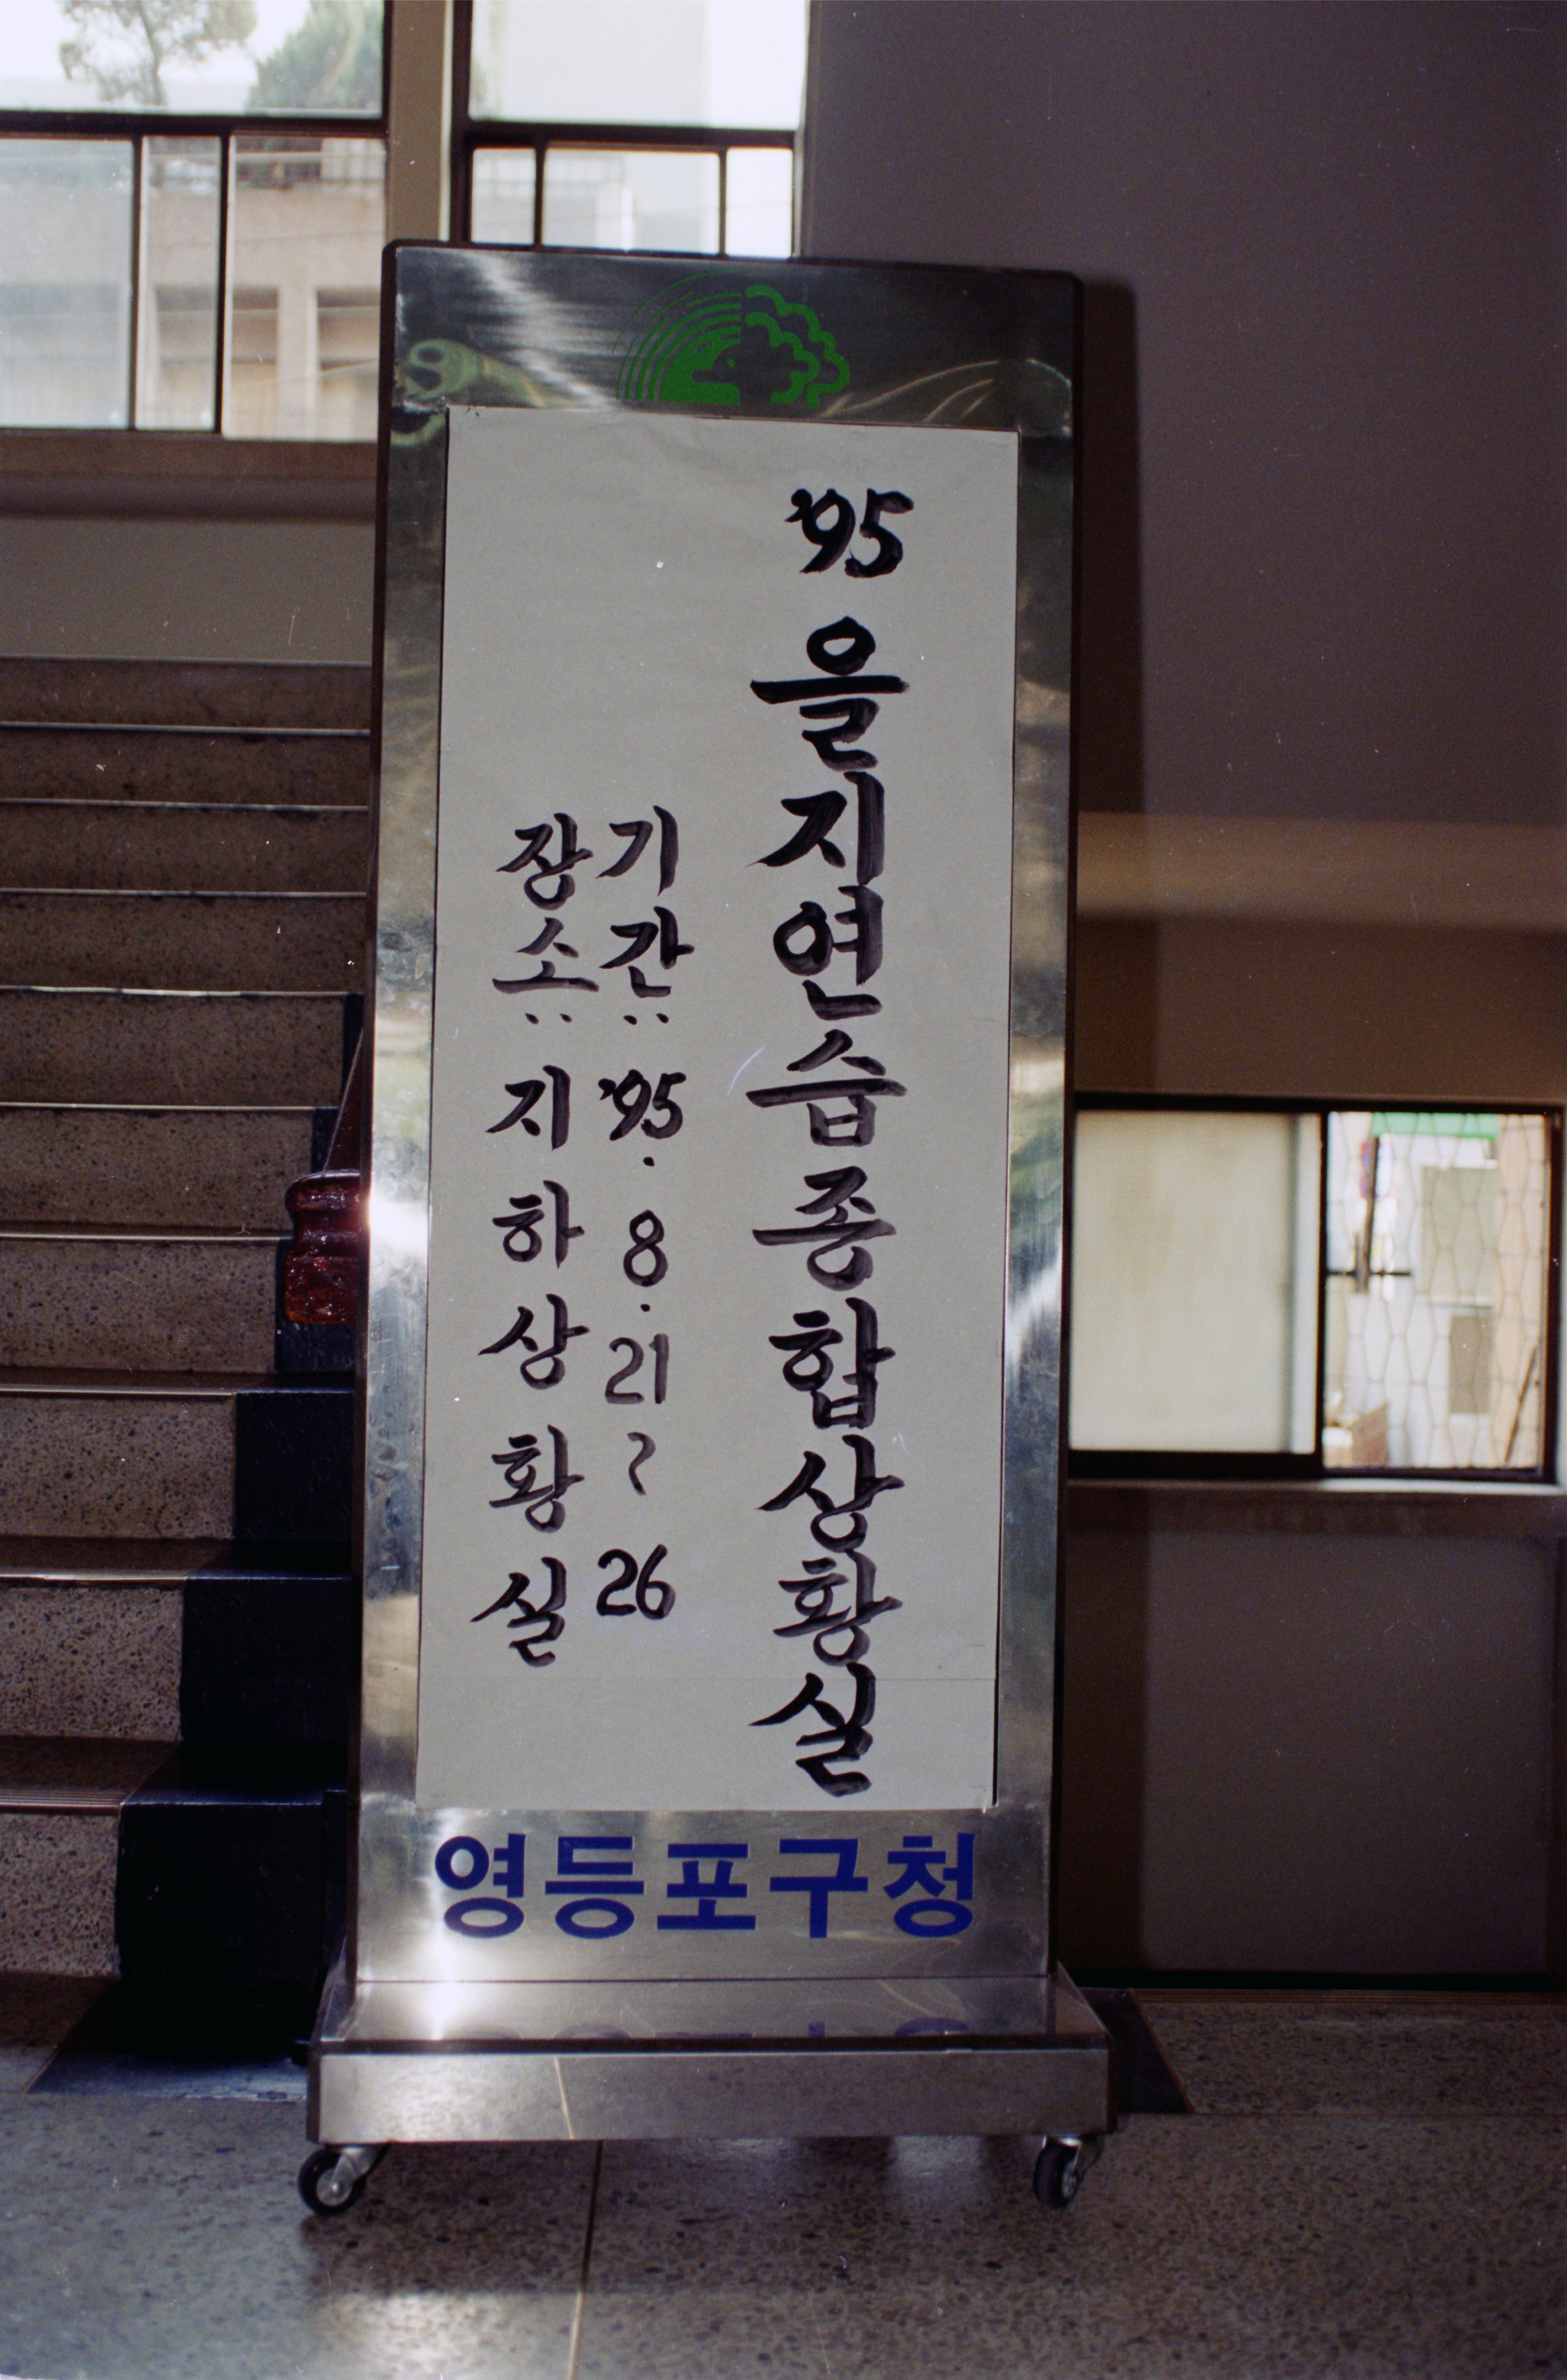 '95 을지연습종합상황실
기간: '95. 8. 21 ~ 26
장소: 지하상황실
영등포구청